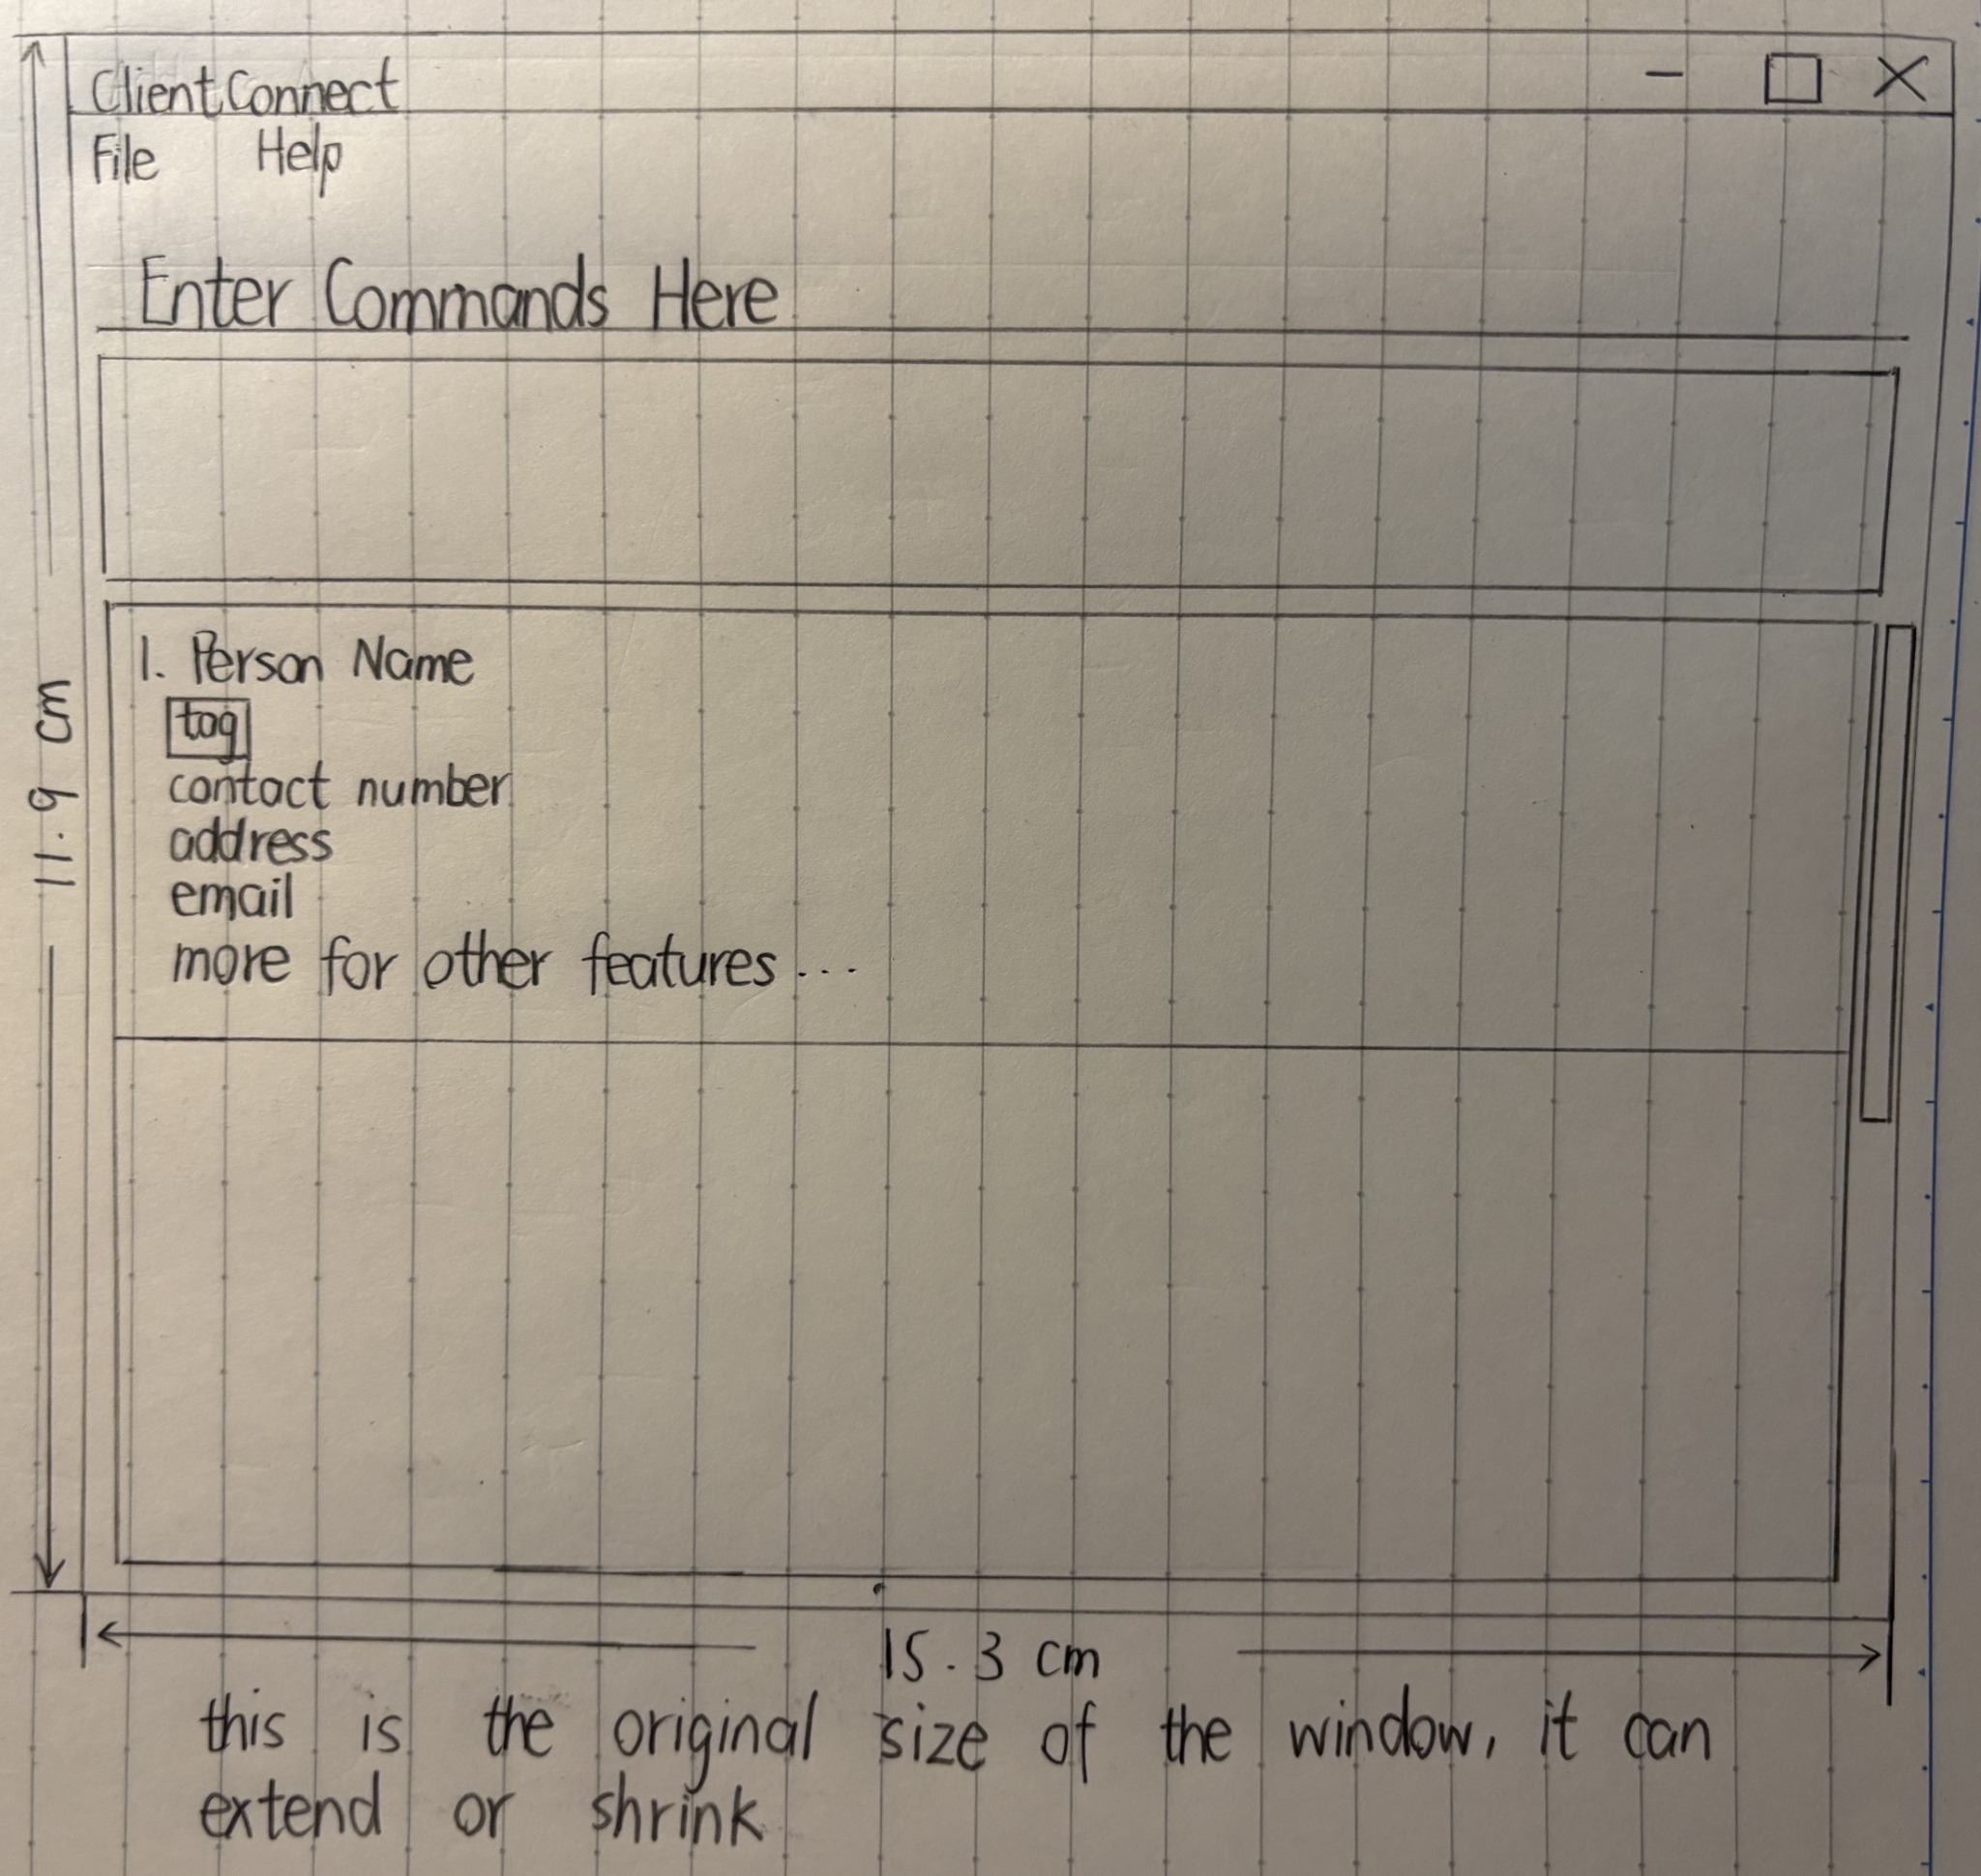 ClientConnect
File Help
Enter Commands Here
1. Person Name
tag
contact number
address
email
more for other features...
11.9 cm
15.3 cm
this is the original size of the window, it can
extend or shrink